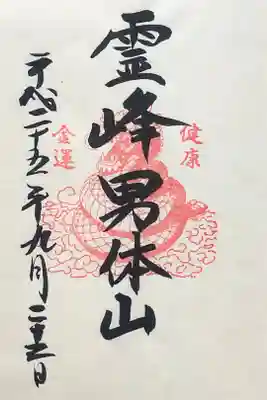 健康
霊峰男体山
金運
平成二十五年九月二十 日